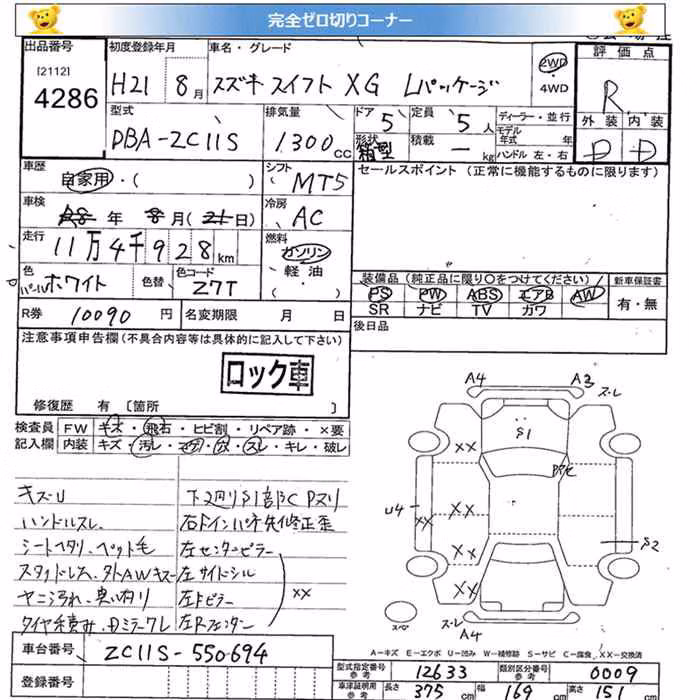 完全ゼロ切りコーナー
出品番号
[2112]
4286
初度登録年月
H21 8月
車名・グレード
スズキ スイフト XG Lパッケージ
2WD
4WD
評価点
R
外装 内装
D D
型式
DBA-ZC11S
排気量
1,300 CC
ドア
5
定員
5人
形状
箱型
積載
- kg
ディーラー・並行
モデル年式 年
ハンドル 左・右
車歴
自家用・( )
シフト
MT5
セールスポイント (正常に機能するものに限ります)
車検
年 8月(21日)
冷房
AC
走行
11万4千928km
燃料
ガソリン
軽油
( )
色
パールホワイト
色替
色コード
Z7T
装備品 (純正品に限り○をつけてください)
PS PW ABS エアB AW
SR ナビ TV カワ
新車保証書
有・無
R券 10090円
名変期限 月 日
後日品
注意事項申告欄(不具合内容等は具体的に記入して下さい)
ロック車
修復歴 有 〔箇所 〕
検査員記入欄
FW キズ・飛石・ヒビ割・リペア跡・×要
内装 キズ・汚レ・コゲ・穴・スレ・キレ・破レ
キズU
ハンドルスレ
シートヘタリ、ペット毛
スタッドレス、外AWキズ
ヤニ汚れ・臭い有り
タイヤ積み、Dミラーワレ
下廻りS1部C Pヌリ
右Fインパネ先修正歪
左センターピラー
左サイドシル
左Fピラー
左Rフェンダー
××
A4
A3
ス・レ
S1
××
U4
××
××
××
××
S2
スペ
ス・レ
A4
A-キズ E-エクボ U-凹み W-補修跡 S-サビ C-腐食 ××-交換済
車台番号
ZC11S-550694
登録番号
型式指定番号
参考
12633
類別区分番号
参考
0009
車庫証明用
参考
長さ 375cm
幅 169cm
高さ 151cm